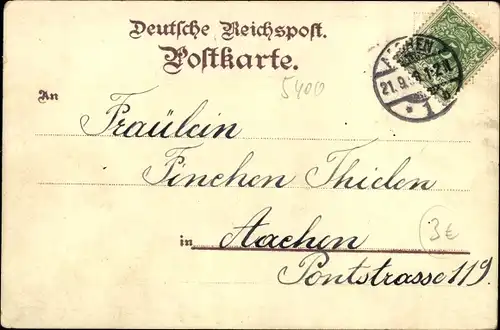 Deutsche Reichspost.
Postkarte.
AACHEN
21.9. 1-2N.
* 1 g
5400
An
Fräulein
Finchen Thielen
in Aachen
3€
Pontstrasse 119.